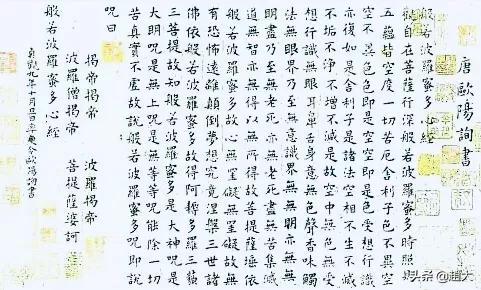 唐歐陽詢書
般若波羅蜜多心經
觀自在菩薩行深般若波羅蜜多時照見
五蘊皆空度一切苦厄舍利子色不異空
空不異色色即是空空即是色受想行識
亦復如是舍利子是諸法空相不生不滅
不垢不淨不增不減是故空中無色無受
想行識無眼耳鼻舌身意無色聲香味觸
法無眼界乃至無意識界無無明亦無無
明盡乃至無老死亦無老死盡無苦集滅
道無智亦無得以無所得故菩提薩埵依
般若波羅蜜多故心無罣礙無罣礙故無
有恐怖遠離顛倒夢想究竟涅槃三世諸
佛依般若波羅蜜多故得阿耨多羅三藐
三菩提故知般若波羅蜜多是大神呪是
大明呪是無上呪是無等等呪能除一切
苦真實不虛故說般若波羅蜜多呪即說
呪曰
揭帝揭帝 波羅揭帝
波羅僧揭帝 菩提薩婆訶
般若波羅蜜多心經
貞觀九年十月旦日率更令歐陽詢書
头条 @趙大